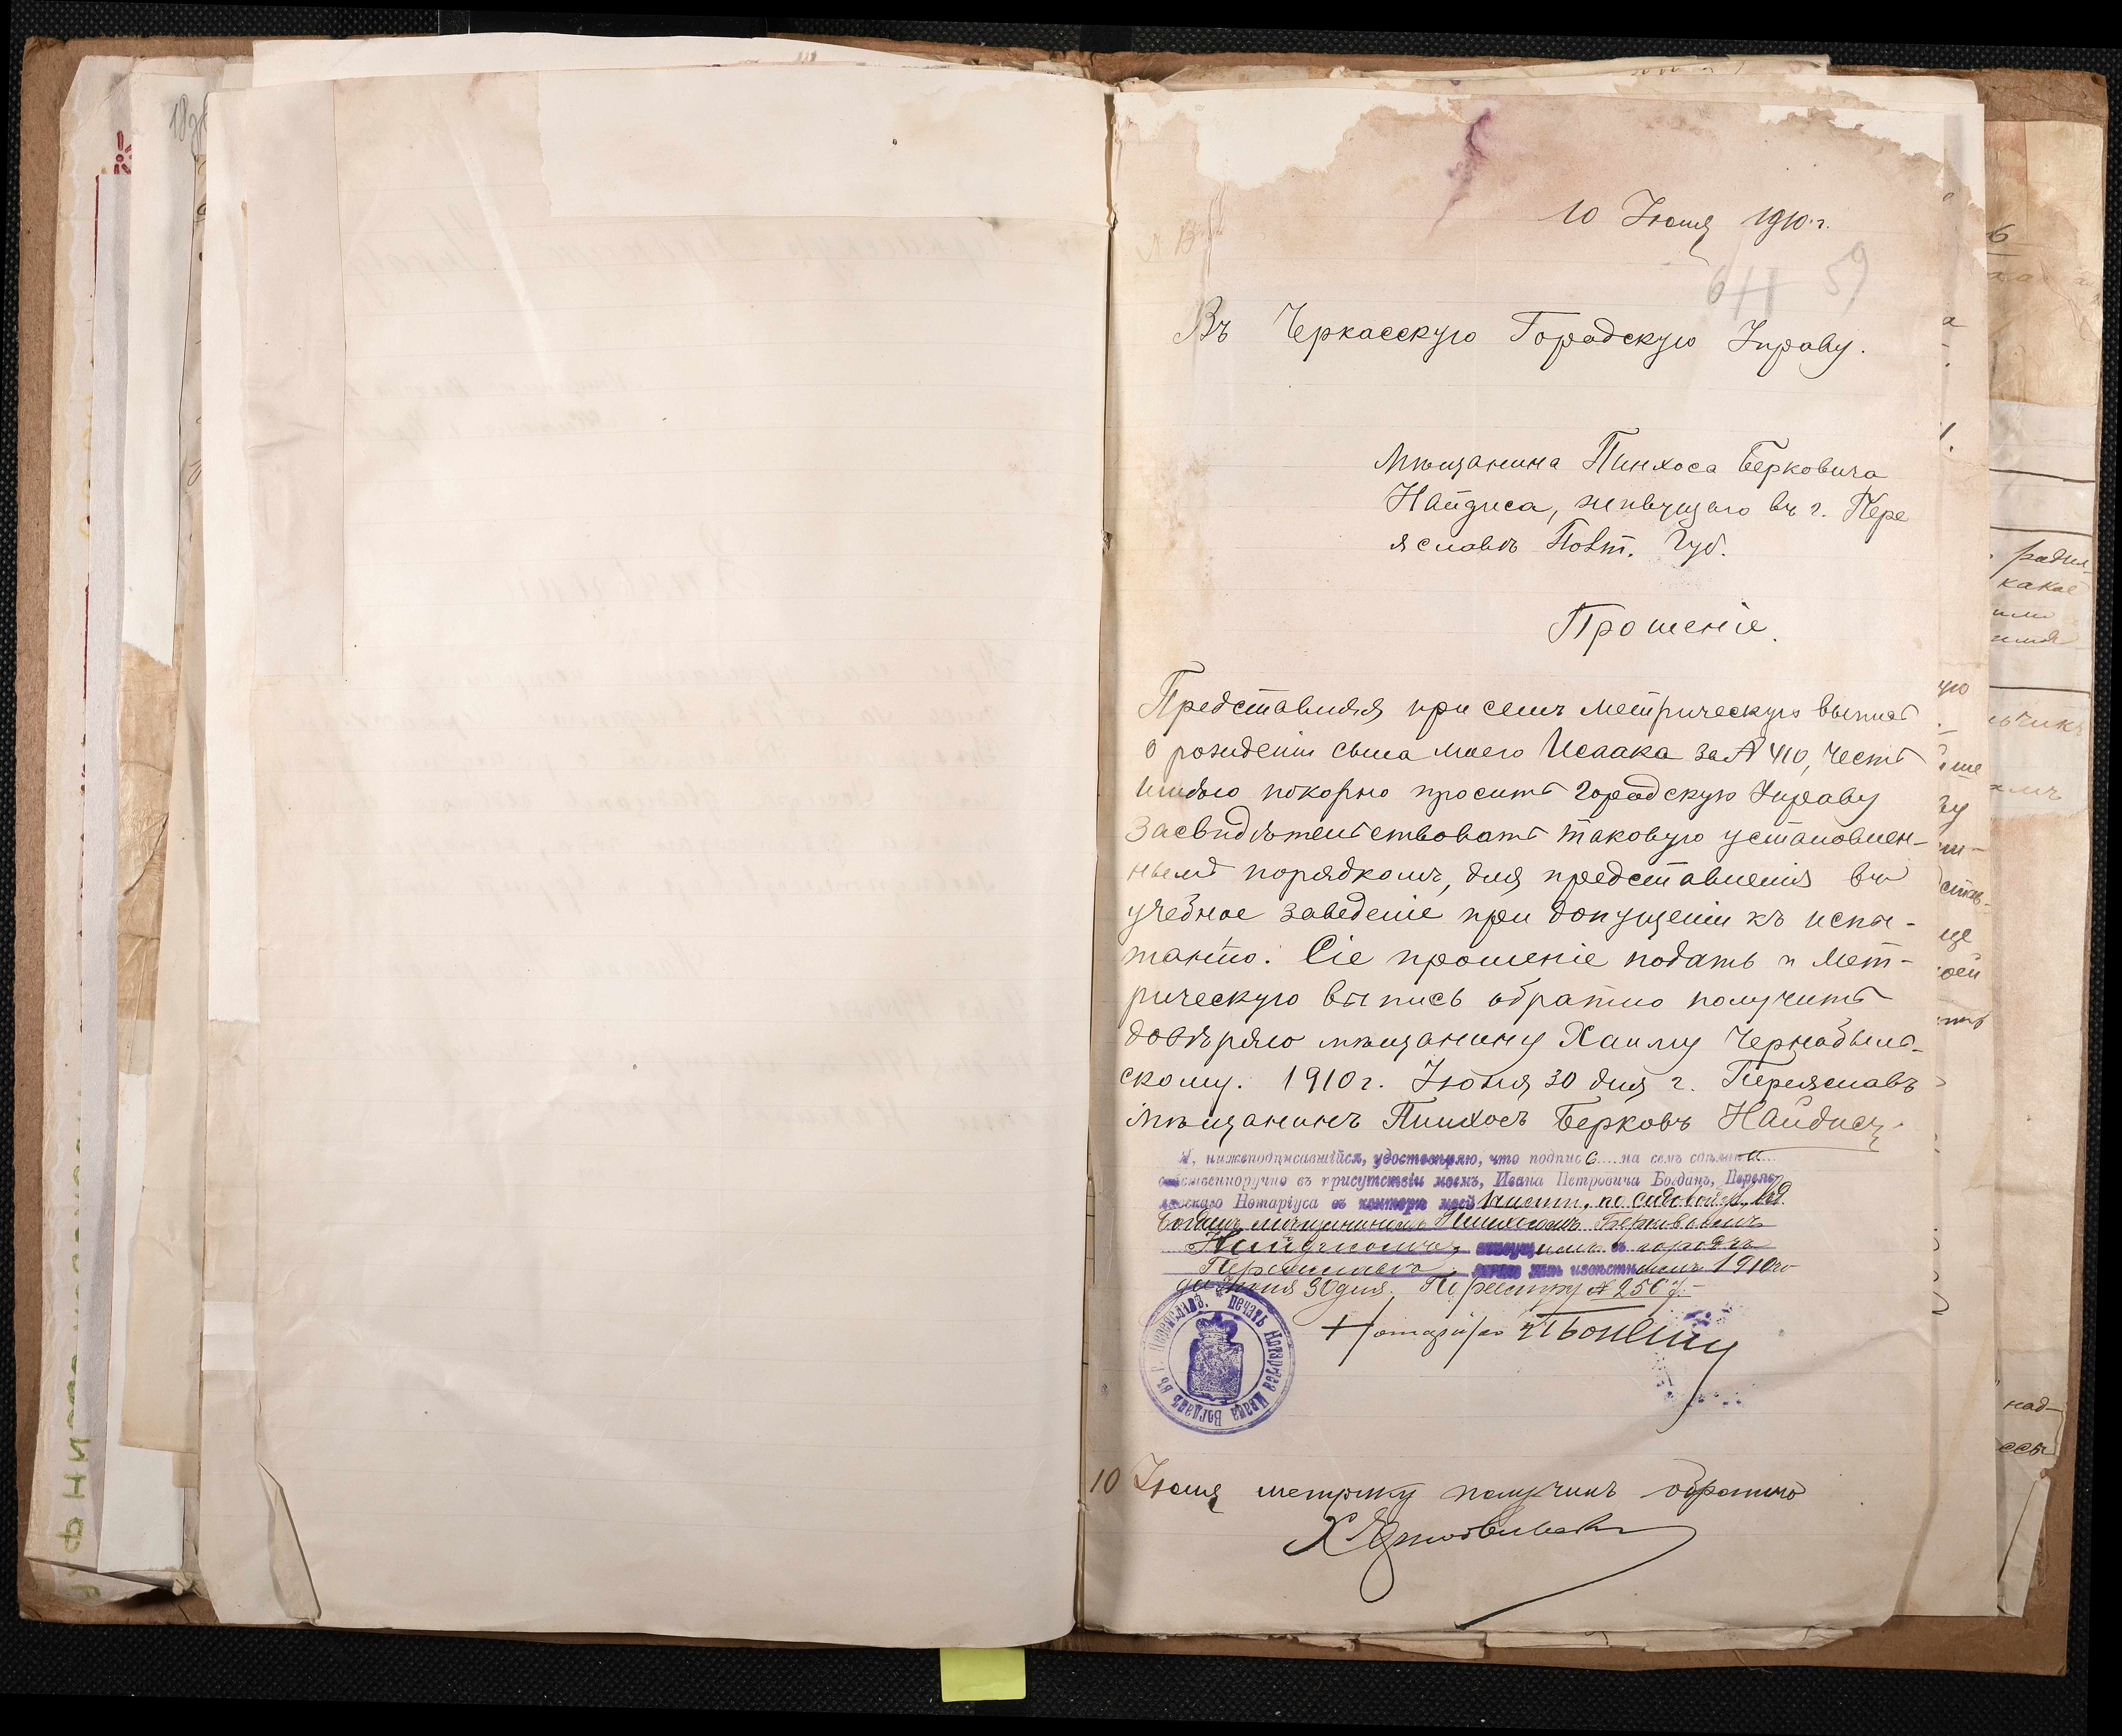 10 Июля 1910 г.
59
Въ Черкасскую Городскую Управу.
Мѣщанина Пинхоса Берковича
Найдиса, живущаго въ г. Пере
яславѣ Полт. Губ.
Прошеніе.
Представляя при семъ метрическую выпись
о рожденіи сына моего Исаака за № 410, честь
имѣю покорно просить Городскую Управу
засвидѣтельствовать таковую установлен-
нымъ порядкомъ, для представленія въ
учебное заведеніе при допущеніи къ испы-
танію. Сіе прошеніе подать и мет-
рическую выпись обратно получить
довѣряю мѣщанину Хаиму Чернобыль-
скому. 1910 г. Іюня 30 дня г. Переяславъ
мѣщанинъ Пинхосъ Берковъ Найдисъ
Я, нижеподписавшійся, удостовѣряю, что подпись на семъ сдѣлана
собственноручно въ присутствіи моемъ, Ивана Петровича Богданъ, Переяс-
лавскаго Нотаріуса въ конторѣ моей по Садовой ул.
мѣщаниномъ Пинхосомъ Берковымъ
Найдисомъ, живущимъ въ городѣ
Переяславѣ, извѣстнымъ 1910 го
да Іюня 30 дня. По реестру №
Нотаріусъ И Богданъ
Печать Нотаріуса Ивана Богданъ въ г. Переяславѣ.
10 Июля метрику получилъ обратно